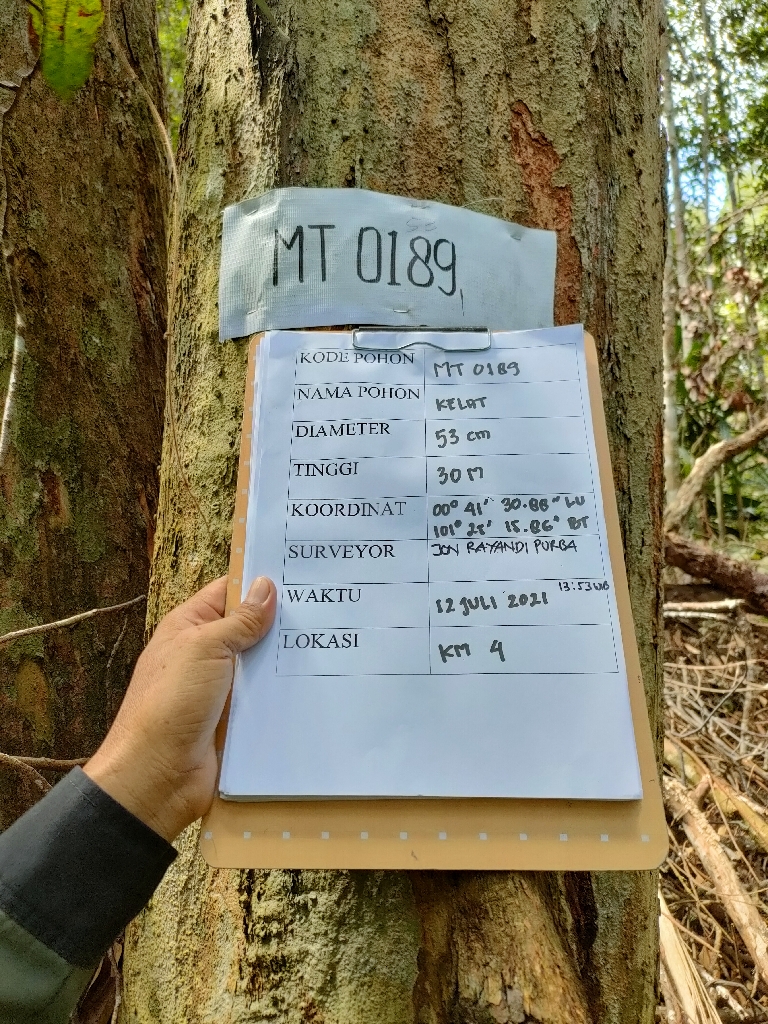 MT 0189
KODE POHON MT 0189
NAMA POHON KELAT
DIAMETER 53 cm
TINGGI 30 M
KOORDINAT 00° 41' 30.88" LU
101° 25' 15.86" BT
SURVEYOR JON RAYANDI PURBA
WAKTU 12 JULI 2021 13:53 WIB
LOKASI KM 4